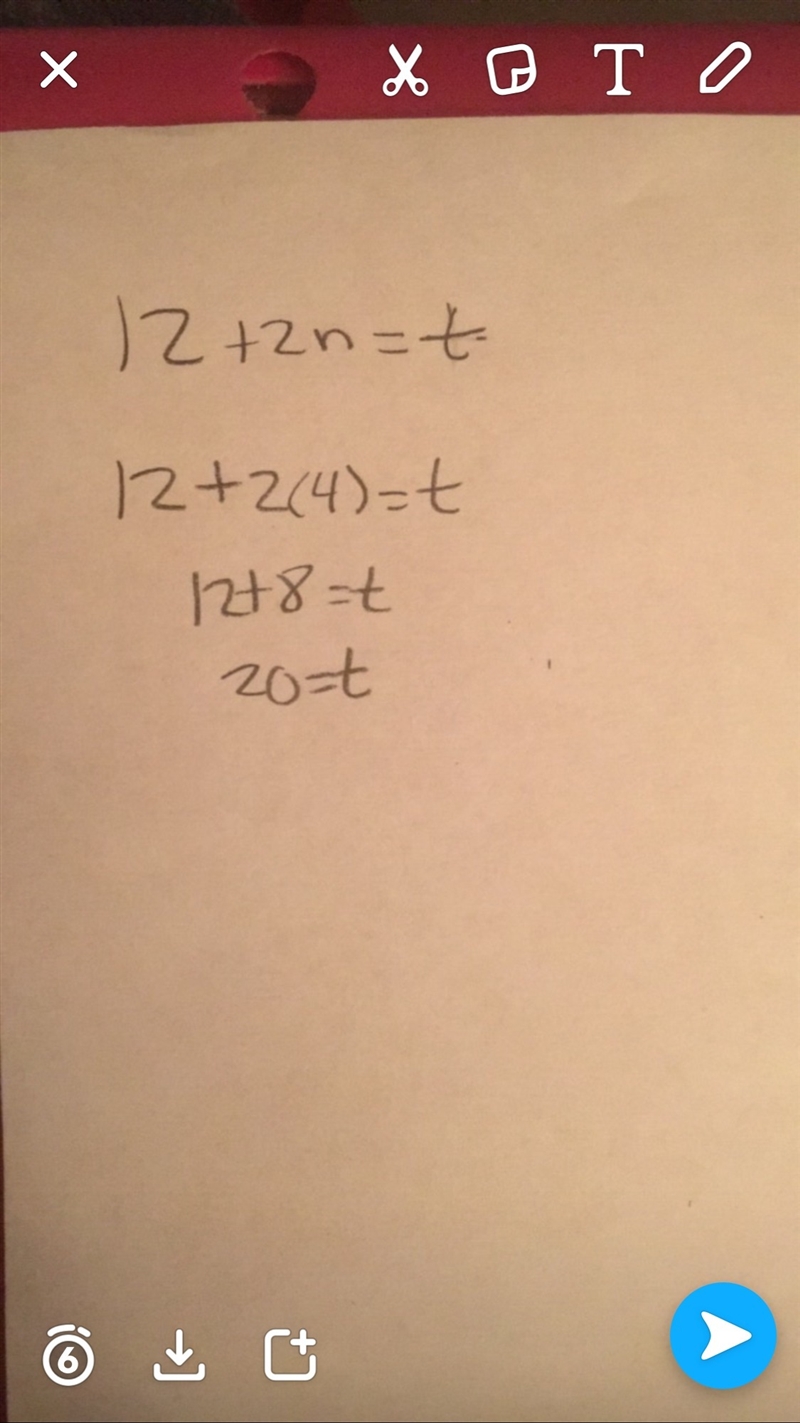 T
12 + 2n = t
12 + 2(4) = t
12 + 8 = t
20 = t
6